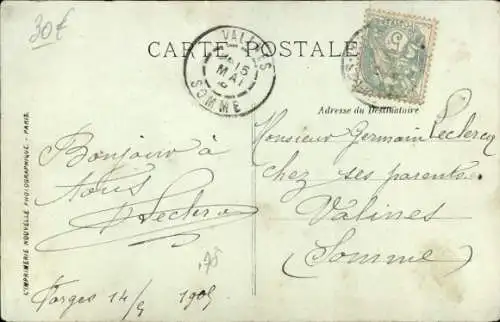 30€
CARTE POSTALE
VALINES
15
MAI
SOMME
Adresse du Destinataire
Bonjour à
tous
Leclercq
Forges 14/5 1905
Monsieur Germain Leclercq
chez ses parents
Valines
(Somme)
L'IMPRIMERIE NOUVELLE PHOTOGRAPHIQUE - PARIS